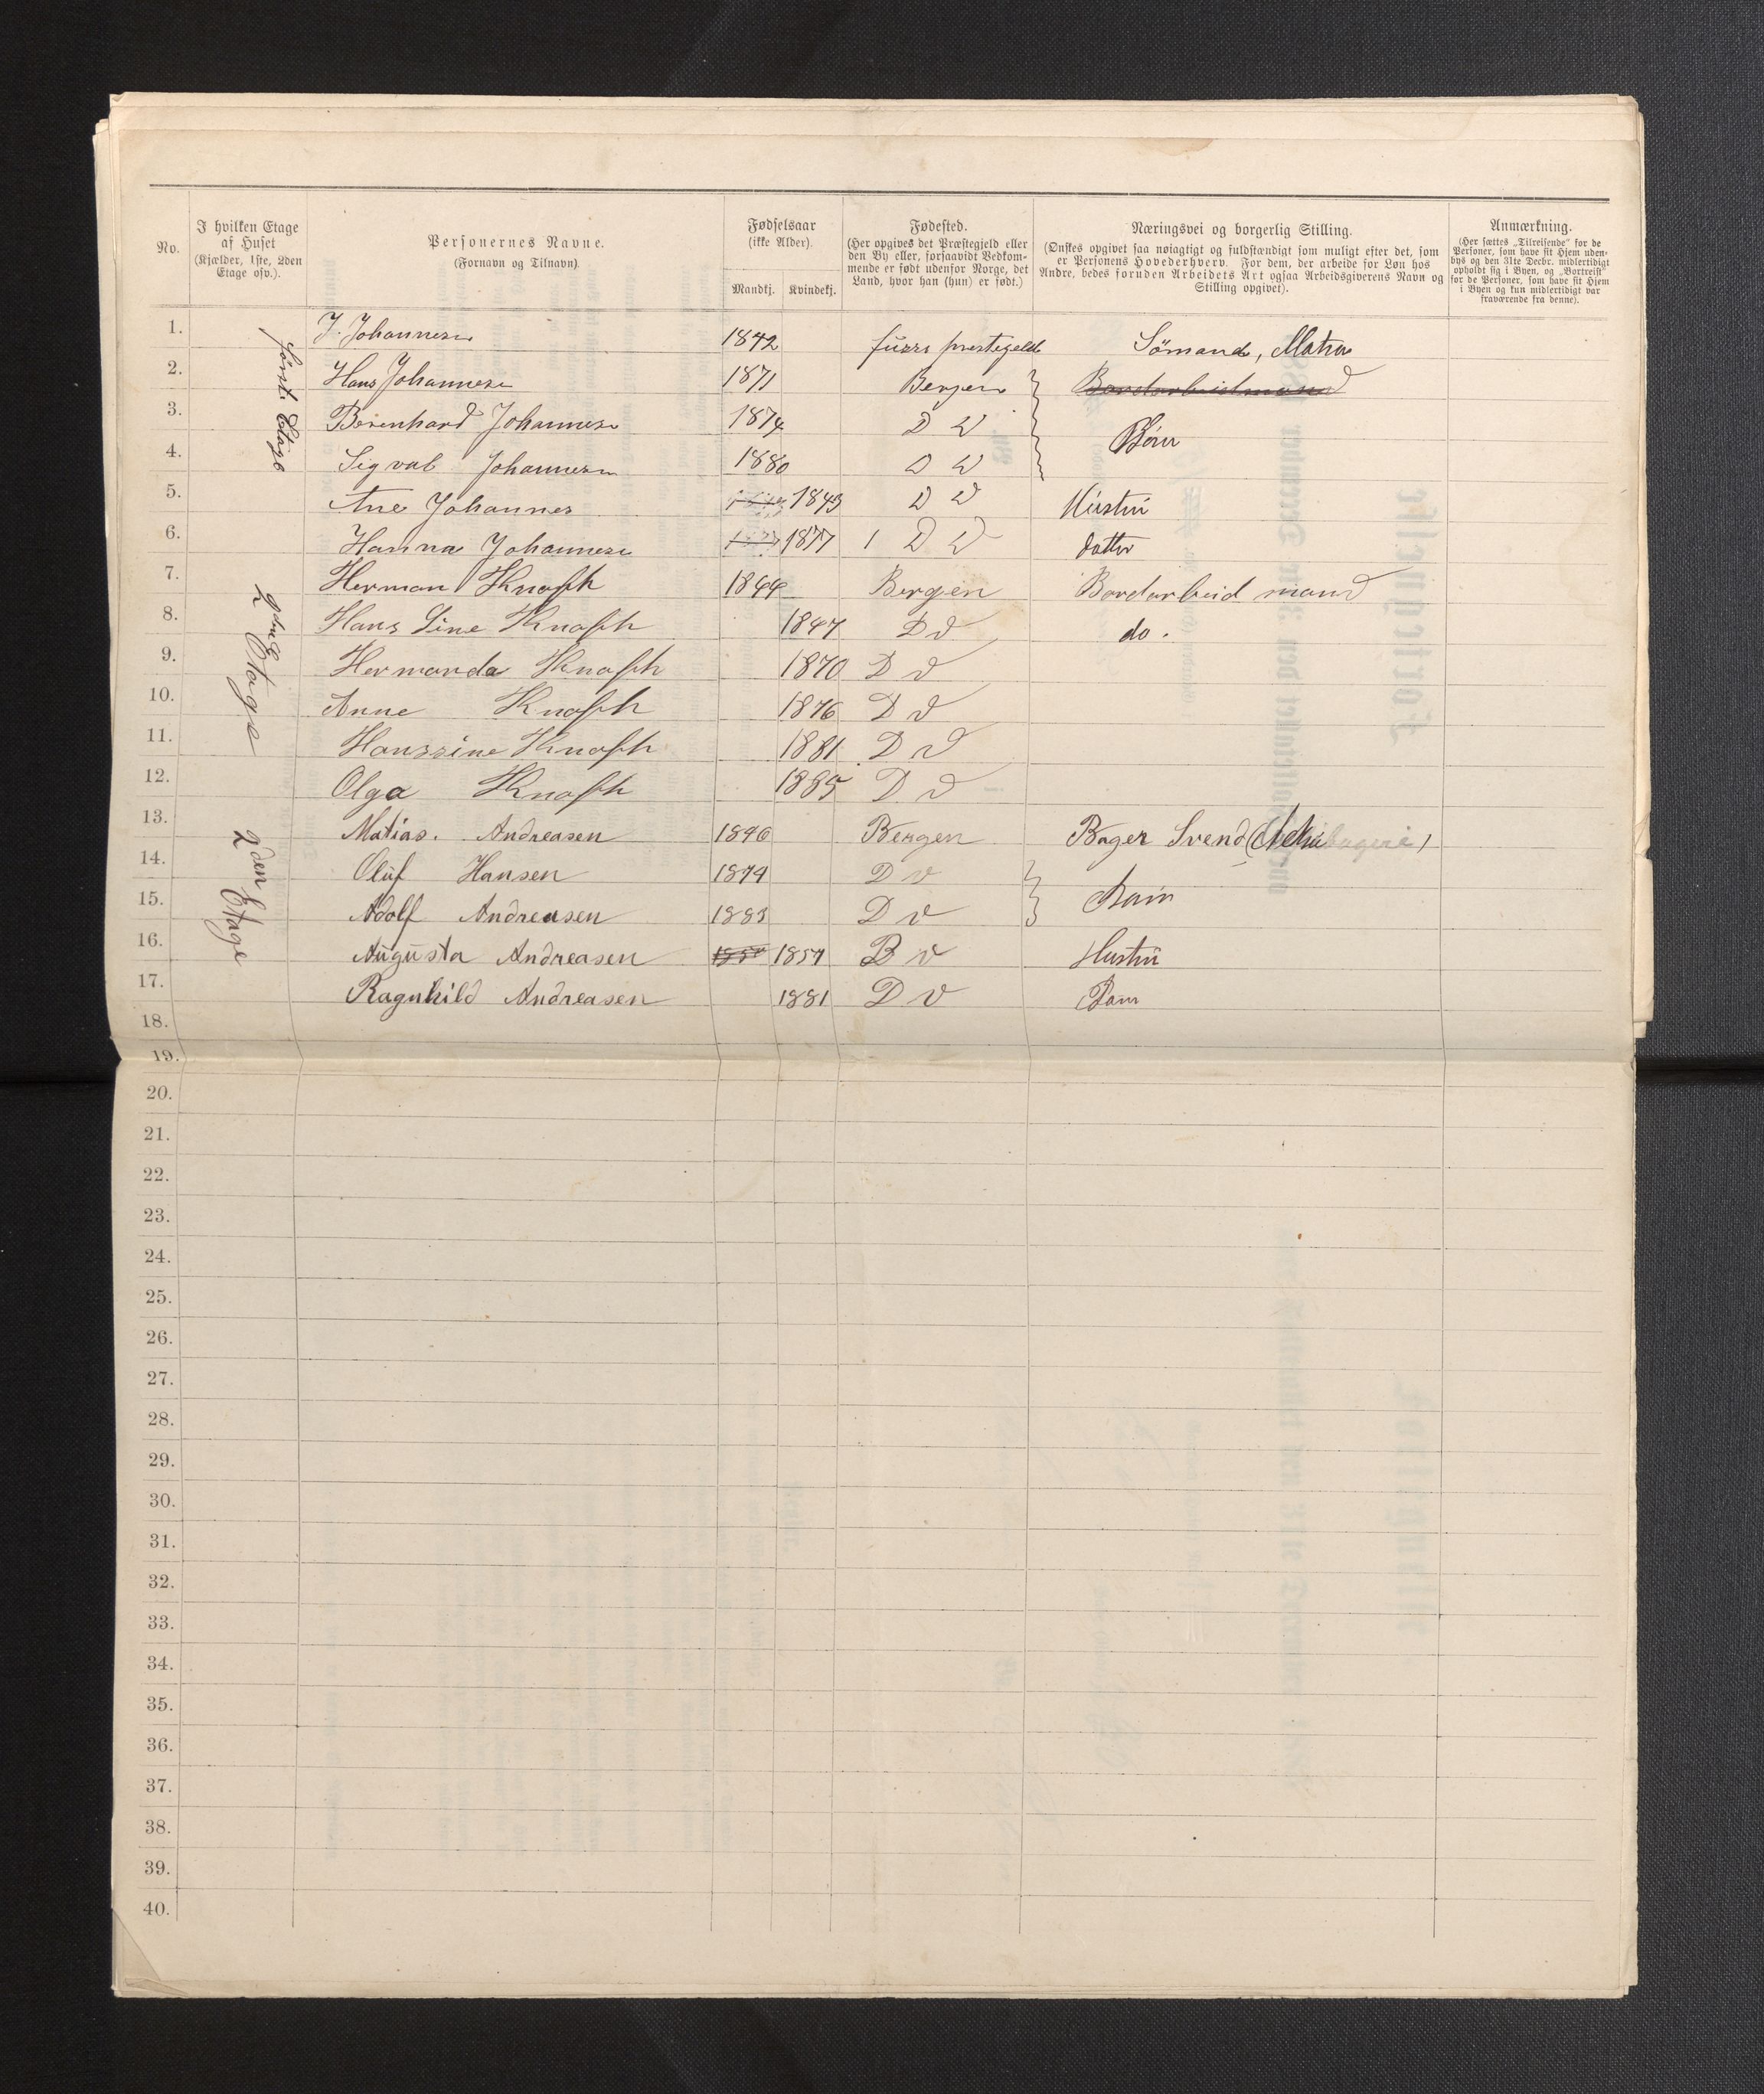 No.
I hvilken Etage
af Huset
(Kjælder, 1ste, 2den
Etage osv.).
Personernes Navne.
(Fornavn og Tilnavn).
Fødselsaar
(ikke Alder).
Mandkj. Kvindekj.
Fødested.
(Her opgives det Præstegjeld eller
den By eller, forsaavidt Vedkom-
mende er født udenfor Norge, det
Land, hvor han (hun) er født.)
Næringsvei og borgerlig Stilling.
(Ønskes opgivet saa nøiagtigt og fuldstændigt som muligt efter det, som
er Personens Hovederhverv. For dem, der arbeide for Løn hos
Andre, bedes foruden Arbeidets Art ogsaa Arbeidsgiverens Navn og
Stilling opgivet).
Anmærkning.
(Her sættes „Tilreisende“ for de
Personer, som have sit Hjem uden-
bys og den 31te Decbr. midlertidigt
opholdt sig i Byen, og „Bortreist“
for de Personer, som have sit Hjem
i Byen og kun midlertidigt var
fraværende fra denne).
første Etage
1. J. Johannesen 1842 prestegeld Sömand,
2. Hans Johannesen 1871 Bergen Bordarbeidmand
3. Berenhard Johannesen 1874 D D Börn
4. Sigval Johannesen 1880 D D
5. Ane Johannes 1843 D D Hustru
6. Hanna Johannesen 1877 D D datter
2den Etage
7. Herman Knoph 1844 Bergen Bordarbeid mand
8. Hans Sine Knoph 1847 D d do.
9. Hermanda Knoph 1870 D d
10. Anne Knoph 1876 D d
11. Hanssine Knoph 1881 D d
12. Olga Knoph 1885 D d
2den Etage
13. Matias. Andreasen 1846 Bergen Bager Svend
14. Oluf Hansen 1874 D v Barn
15. Adolf Andreasen 1883 D v
16. Augusta Andreasen 1857 D v Hustru
17. Ragnhild Andreasen 1881 D v Barn
18.
19.
20.
21.
22.
23.
24.
25.
26.
27.
28.
29.
30.
31.
32.
33.
34.
35.
36.
37.
38.
39.
40.